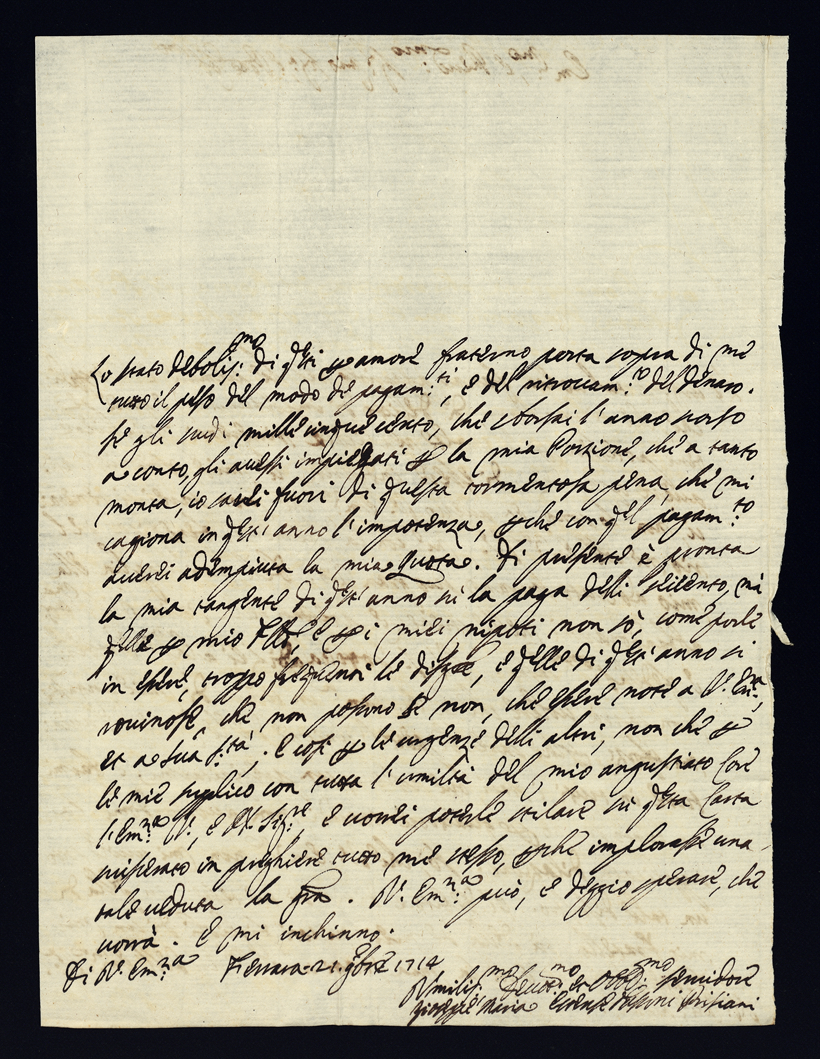 Lo stato debolis:mo di q.sti per amore fraterno porta sopra di me
tutto il peso del modo de pagam:ti, e del ritrouam:to del denaro.
se gli scudi mille cinque cento, che sborsai l'anno scorso
a conto, gli auessi impiegati per la mia Porzione, che a tanto
monta, io sarei fuori di questa tormentosa pena, che mi
cagiona in q.st'anno l'impotenza, perche con q.l pagam:to
auerei adempiuta la mia Quota. Di presente è pronta
la mia tangente di q.st'anno su la paga delli seicento, mà
q.lle per mio F.llo, e per i miei nipoti non sò, come porle
in essere, troppo frequenti le disg.e, e q.lle di q.st'anno si
rouinose, che non possono se non, che essere note a V. Em:za,
et a Sua S:tà. E così per le urgenze delli altri, non che per
le mie supplico con tutta l'umiltà del mio angustiato Core
l'Em:za V., e uorrei poterle stilare su q.sta Carta
in preghiere tutto me stesso, perche implorasse una
tale ueduta la gra. V. Em:za può, e deggio sperare, che
uorrà. E mi inchinno.
Di V. Em:za Ferrara 21. 9bre 1714
Vmilis:mo Deuot:mo et Obb:mo Seruidore
Maria Estense Prisiani